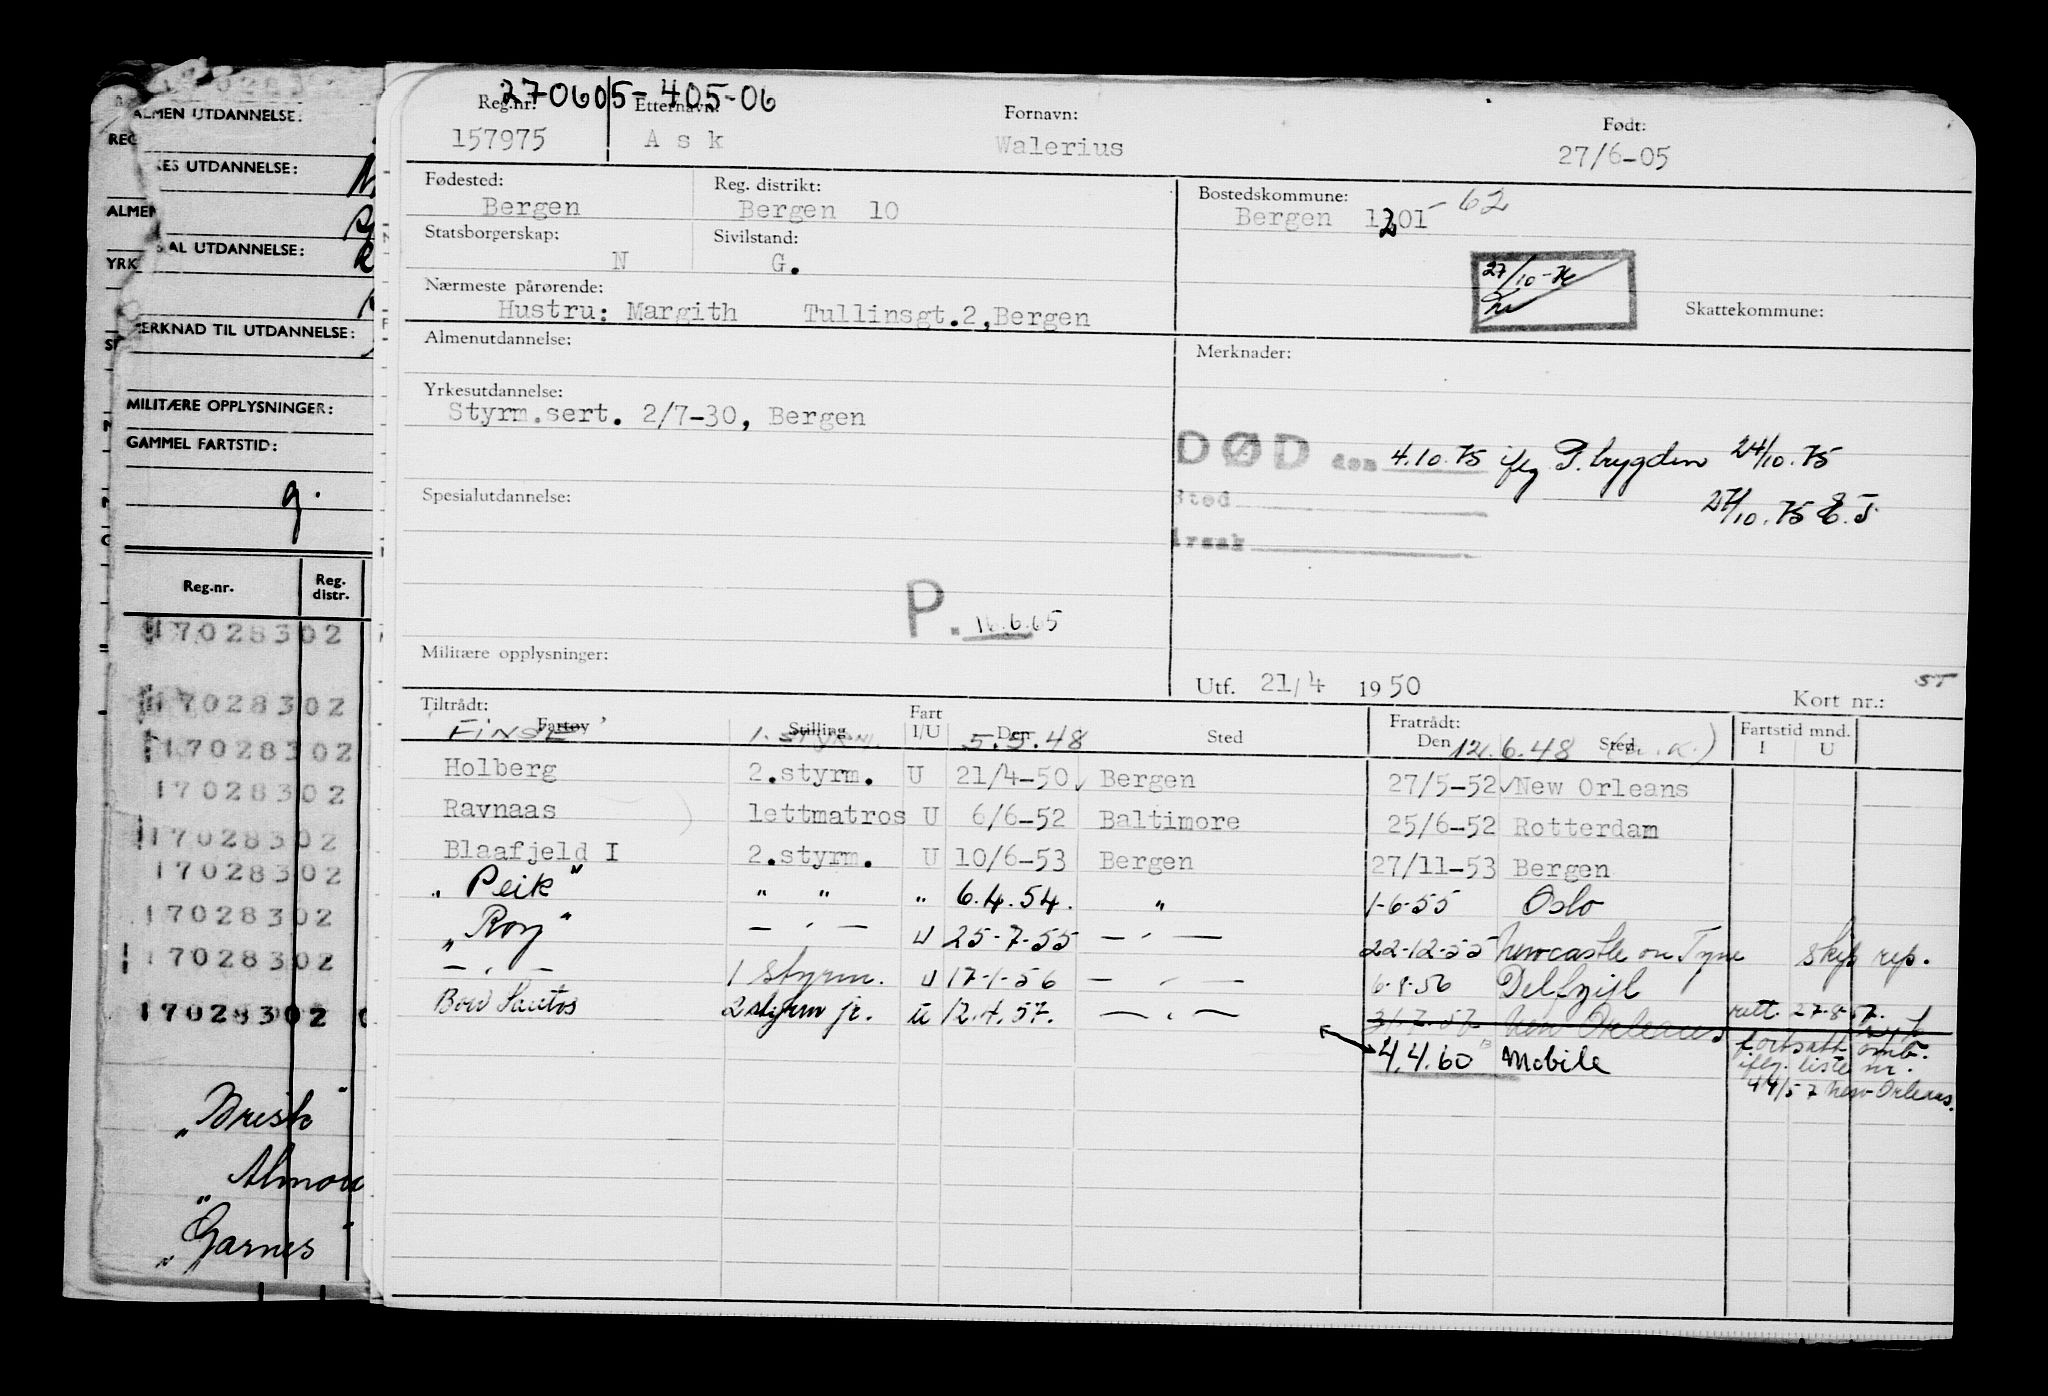 270605-405-06
Reg.nr. Etternavn: Fornavn: Født:
157975 Ask Walerius 27/6-05
Fødested: Reg. distrikt: Bostedskommune:
Bergen Bergen 10 Bergen 1201 - 62
Statsborgerskap: Sivilstand:
N G.
27/10-76
Nærmeste pårørende: Skattekommune:
Hustru: Margith Tullinsgt.2, Bergen
Almenutdannelse: Merknader:
Yrkesutdannelse:
Styrm.sert. 2/7-30, Bergen
DØD den 4.10.75 ifly P. trygden 24/10.75
Spesialutdannelse: Sted 27/10.75 E.T.
Årsak
P. 16.6.65
Militære opplysninger:
Utf. 21/4 1950 Kort nr.:
Tiltrådt: Fart Fratrådt: Fartstid mnd.
Fartøy Stilling I/U Den Sted Den Sted I U
FINSE 1. STYRM. 5.5.48 12.6.48
Holberg 2.styrm. U 21/4-50 Bergen 27/5-52 New Orleans
Ravnaas lettmatros U 6/6-52 Baltimore 25/6-52 Rotterdam
Blaafjeld I 2.styrm. U 10/6-53 Bergen 27/11-53 Bergen
"Peik" " " " 6.4.54. " 1-6-55 Oslo
"Roy" - " - U 25-7-55 - " - 22-12-55 Newcastle on Tyne Skip rep.
- " - 1 styrm. U 17-1-56 - " - Delfzijl
Bow Santos 2 styrm jr. u 12.4.57. - " - 31.7.57 New Orleans rett. 27-8-57.
4.4.60 Mobile fortsatt omb.
ifly. liste nr.
44/57 New-Orleans.
ALMEN UTDANNELSE:
REG
YRKES UTDANNELSE:
ALMEN
SPESIAL UTDANNELSE:
YRK
MERKNAD TIL UTDANNELSE:
MILITÆRE OPPLYSNINGER:
GAMMEL FARTSTID:
g.
Reg.nr. Reg. distr.
17028302
17028302
17028302
17028302
17028302
17028302
17028302
17028302
17028302
"Brisk"
"Almou
"Garnes"